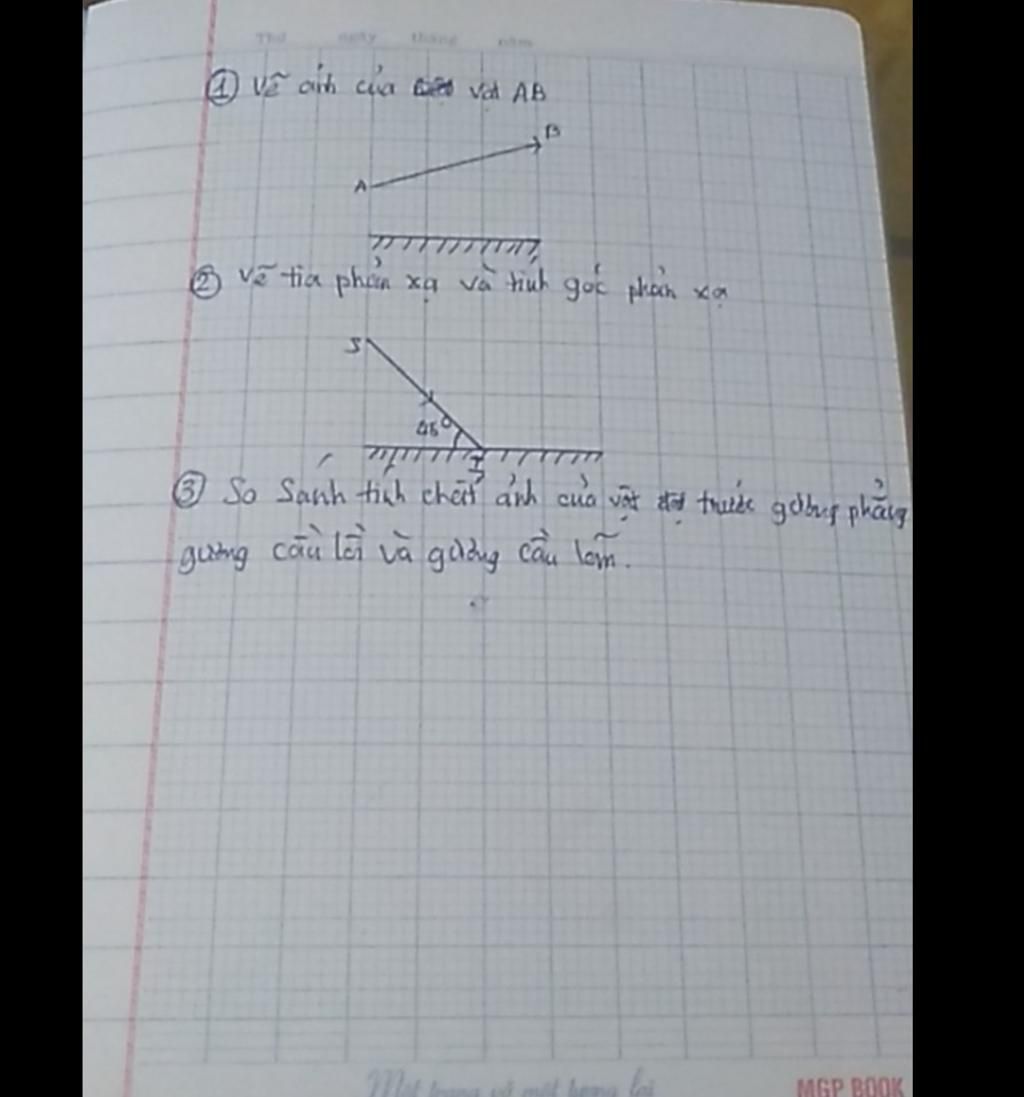 Thứ ngày tháng năm
① Vẽ ảnh của vật AB
B
A
② Vẽ tia phản xạ và tính góc phản xạ
S
45°
I
③ So sánh tính chất ảnh của vật trước gương phẳng
gương cầu lồi và gương cầu lõm.
MGP BOOK